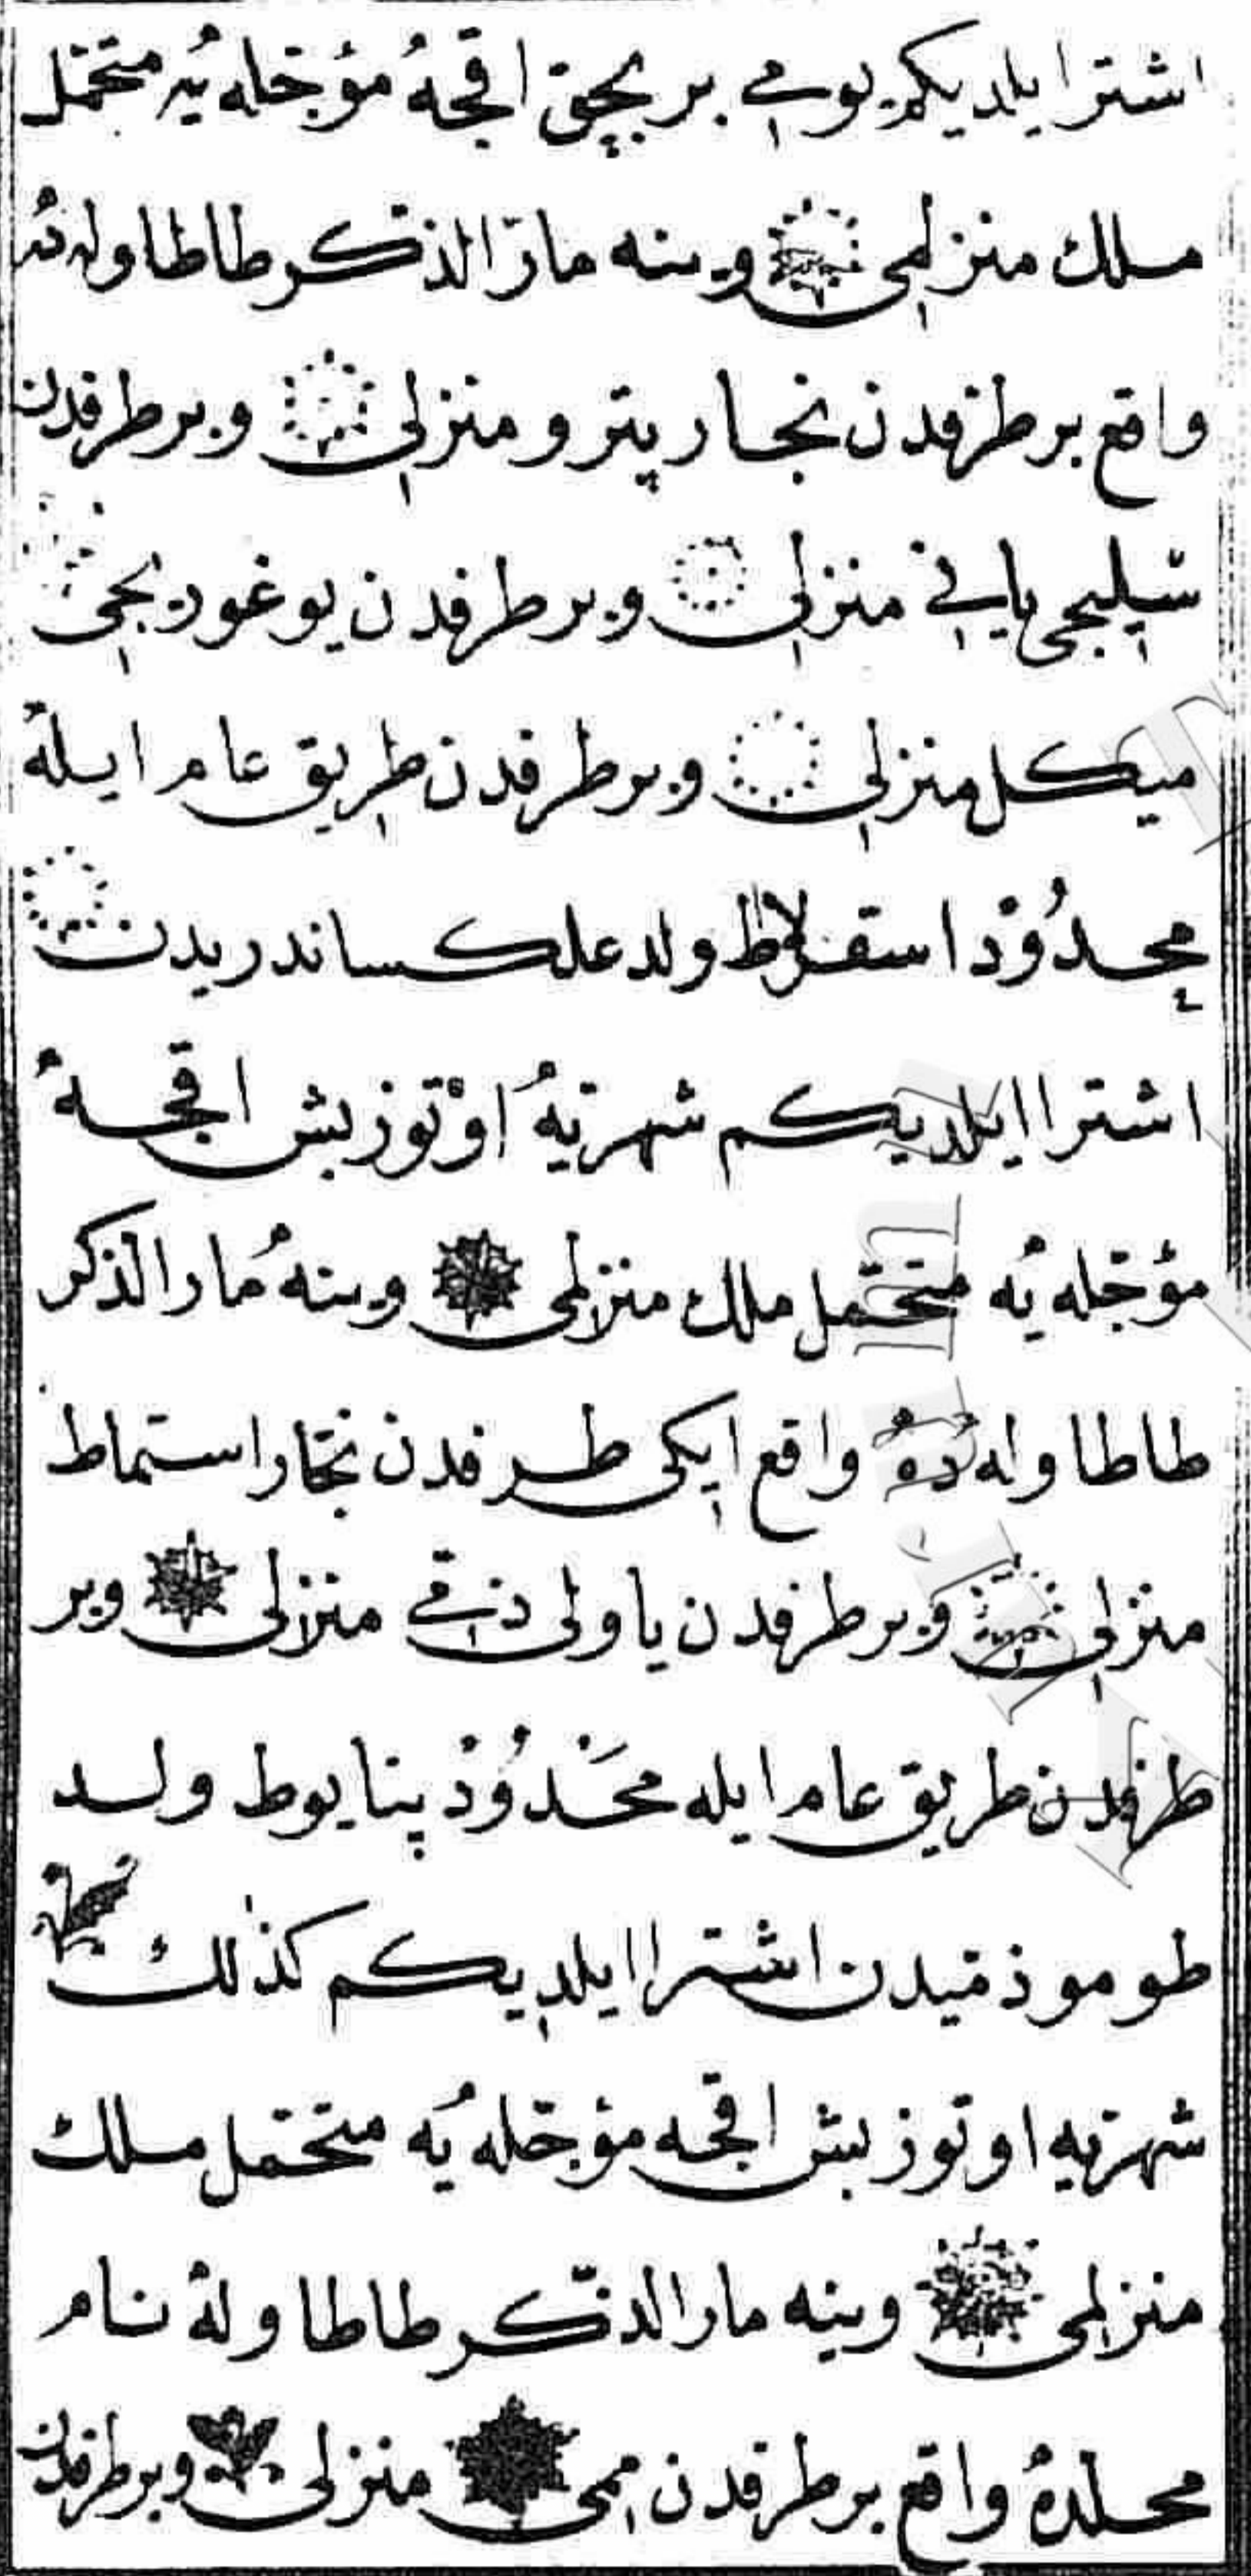 اشترا یلدیكم یومی بر بچق اقچهٔ مؤجله یه متحمل
ملك منزلمی وینه مارّ الذكر طاطاوله ده
واقع بر طرفدن نجار پترو منزلی وبر طرفدن
منزلی وبر طرفدن یوغورتجی
میكل منزلی وبر طرفدن طریق عام ایله
محدُوْد استقرلاط ولد علكساندریدن
اشترا ایلدیكم شهریهٔ اوْتوز بش اقچهٔ
مؤجله یه متحمّل ملك منزلمی وینهٔ مار الذكر
طاطاوله دهٔ واقع ایكی طرفدن نجار استماط
منزلی وبر طرفدن یاولی منزلی وبر
طرفدن طریق عام ایله محَدُوْد پنایوط ولد
طوموذقیدن اشترا ایلدیكم كذٰلك
شهریه اوتوز بش اقچه مؤجله یه متحمل ملك
منزلمی وینه مار الذّكر طاطاوله نام
محلدهٔ واقع بر طرفدن ممی منزلی وبر طرفدن